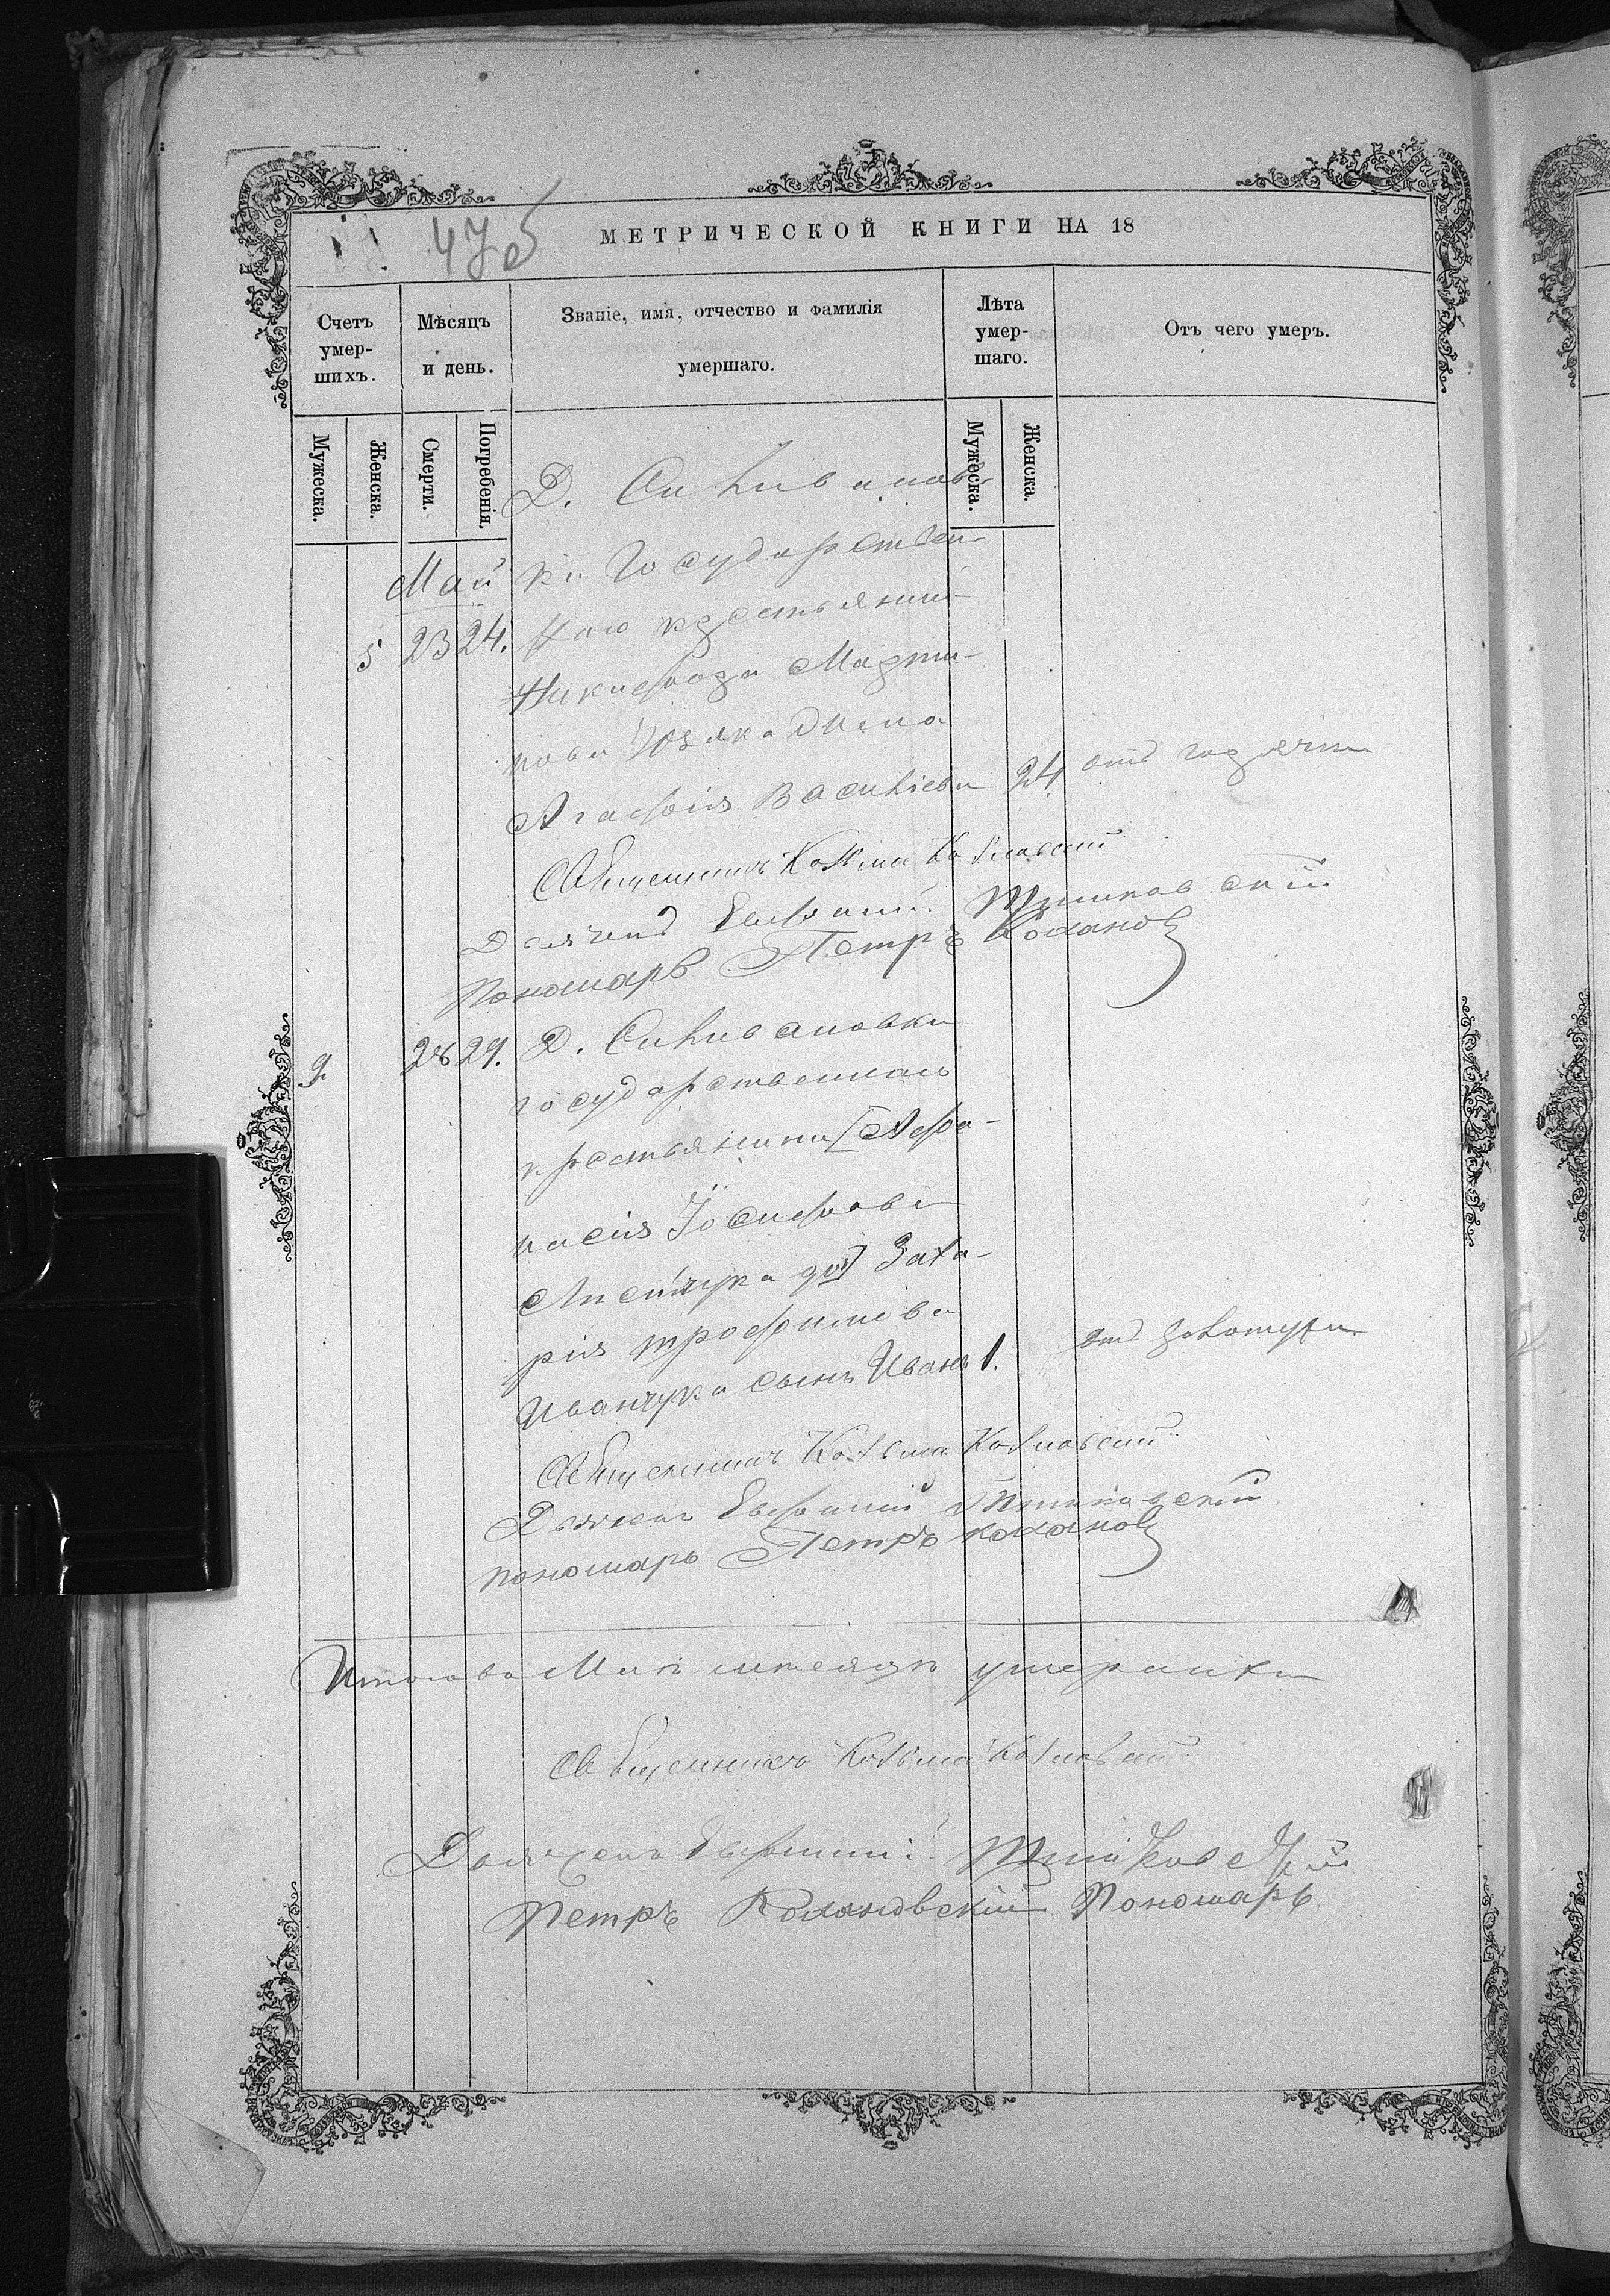 47об
МЕТРИЧЕСКОЙ КНИГИ НА 18
Счетъ умер-шихъ.
Мѣсяцъ и день.
Званіе, имя, отчество и фамилія умершаго.
Лѣта умер-шаго.
Отъ чего умеръ.
Мужеска.
Женска.
Смерти.
Погребенія.
Мужеска.
Женска.
Д. Силивановъ-
Май ки Государствен-
5 23 24. наго крестьянина
Никифора Марти-
нова жена
Агафія Василіева 24 отъ горячки
Священникъ Козьма Козловскій
Дьячекъ Евфимій
Пономарь Петръ Кохановъ
9. 28 29. Д. Силивановки
государственнаго
крестьянина [Афа-
насія Іосифова
Лисичука дѣв] Заха-
рія Трофимова
Иванчука сынъ Иванъ 1. отъ золотухи
Священникъ Козьма Козловскій
Дьячекъ Евфимій
пономарь Петръ Кохановъ
Итого въ Маѣ мѣсяцѣ умершихъ
Священникъ Козьма Козловскій
Дьячекъ Евфимій
Петръ Кохановскій Пономарь